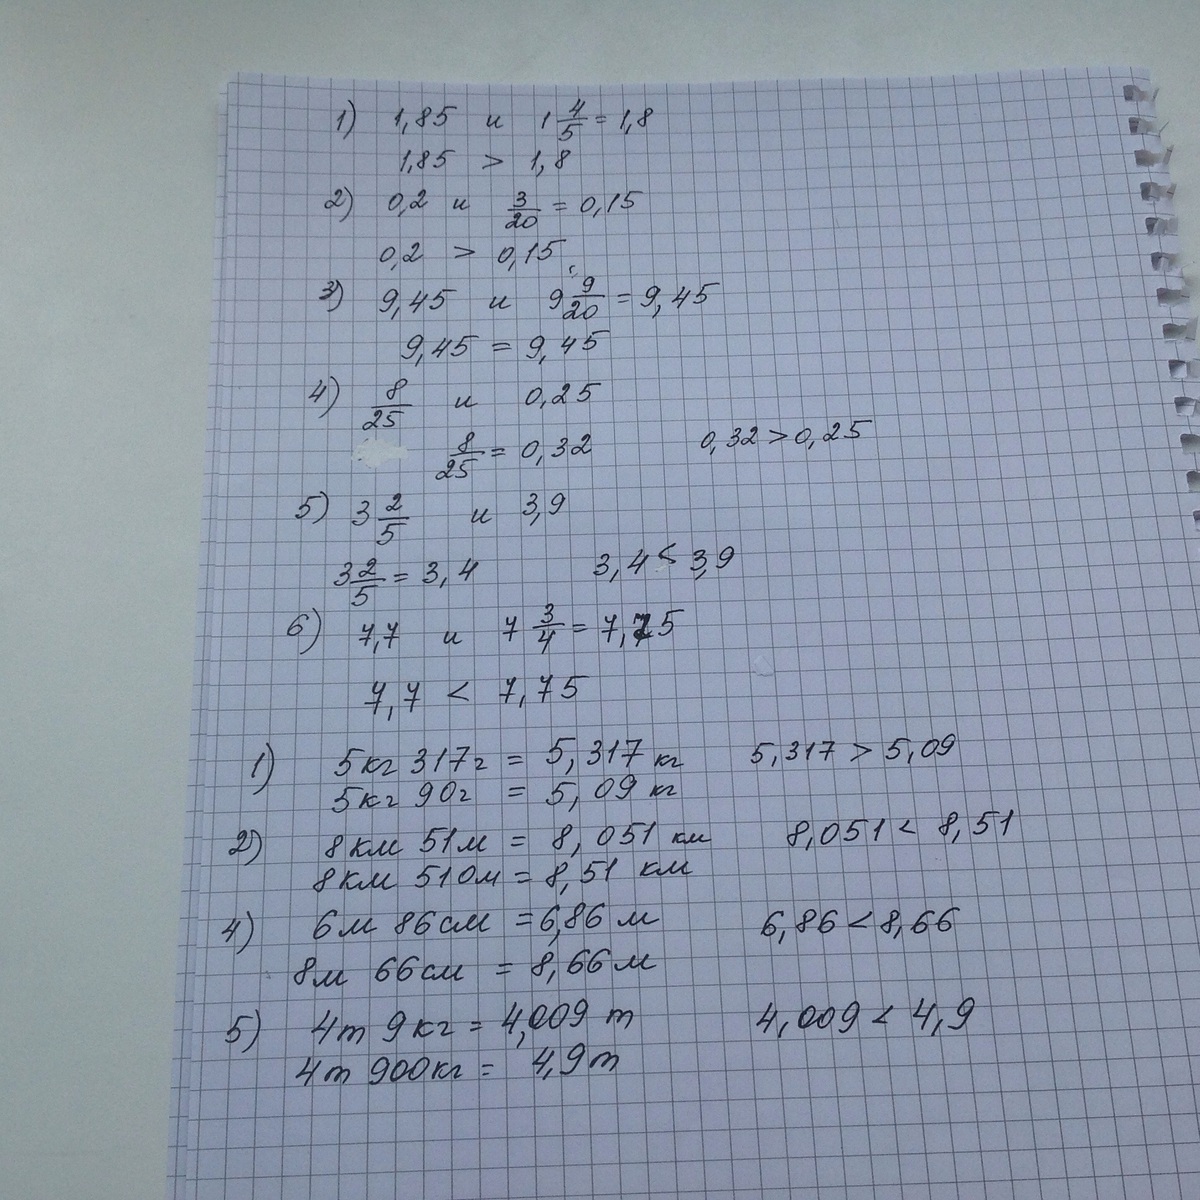 1) 1,85 и 1 4/5 = 1,8
1,85 > 1,8
2) 0,2 и 3/20 = 0,15
0,2 > 0,15
3) 9,45 и 9 9/20 = 9,45
9,45 = 9,45
4) 8/25 и 0,25
8/25 = 0,32 0,32 > 0,25
5) 3 2/5 и 3,9
3 2/5 = 3,4 3,4 < 3,9
6) 7,7 и 7 3/4 = 7,75
7,7 < 7,75
1) 5кг 317г = 5,317 кг 5,317 > 5,09
5кг 90г = 5,09 кг
2) 8км 51м = 8,051 км 8,051 < 8,51
8км 510м = 8,51 км
4) 6м 86см = 6,86 м 6,86 < 8,66
8м 66см = 8,66 м
5) 4т 9кг = 4,009 т 4,009 < 4,9
4т 900кг = 4,9т